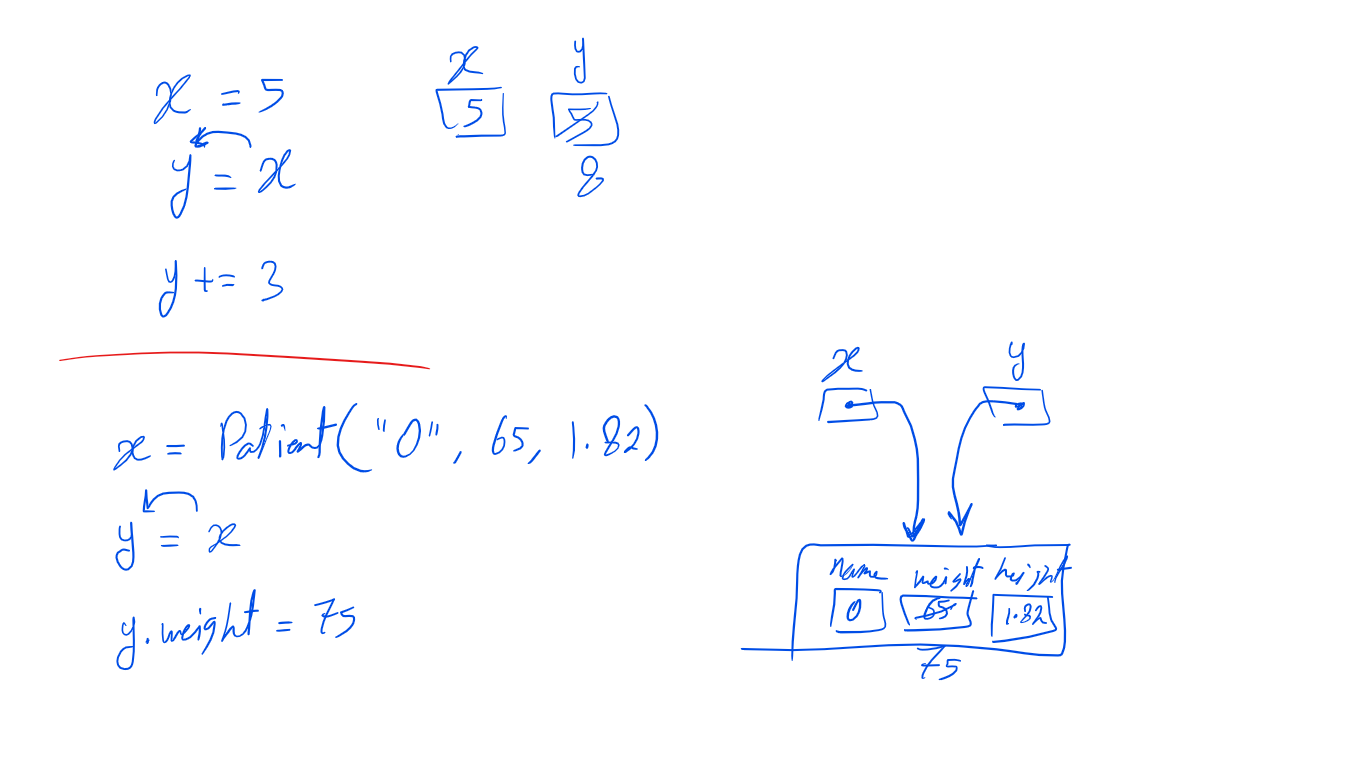 x = 5
y = x
y += 3
x y
5 5
8
x = Patient("0", 65, 1.82)
y = x
y.weight = 75
x y
name weight height
0 65 1.82
75